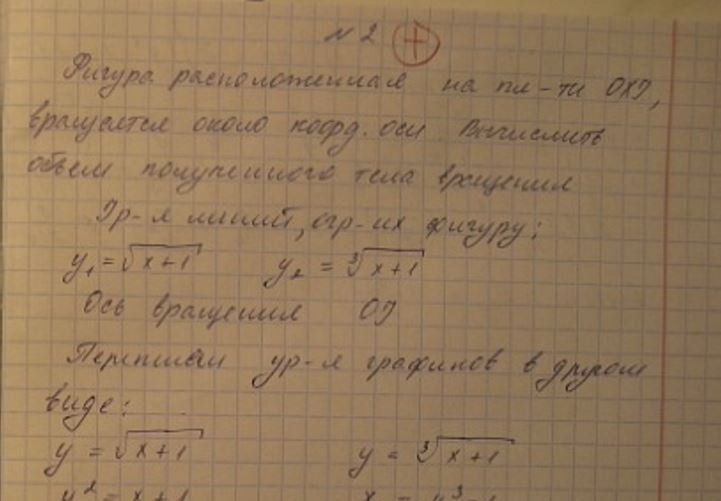 № 2 +
Фигура расположенная на пл-ти OXY,
вращается около коорд. оси Вычислить
объем полученного тела вращения
Ур-я линий, огр-их фигуру:
y₁ = √x+1 y₂ = ∛x+1
Ось вращения OY
Перепишем ур-я графиков в другом
виде:
y = √x+1 y = ∛x+1
y² = x+1 x = y³-1